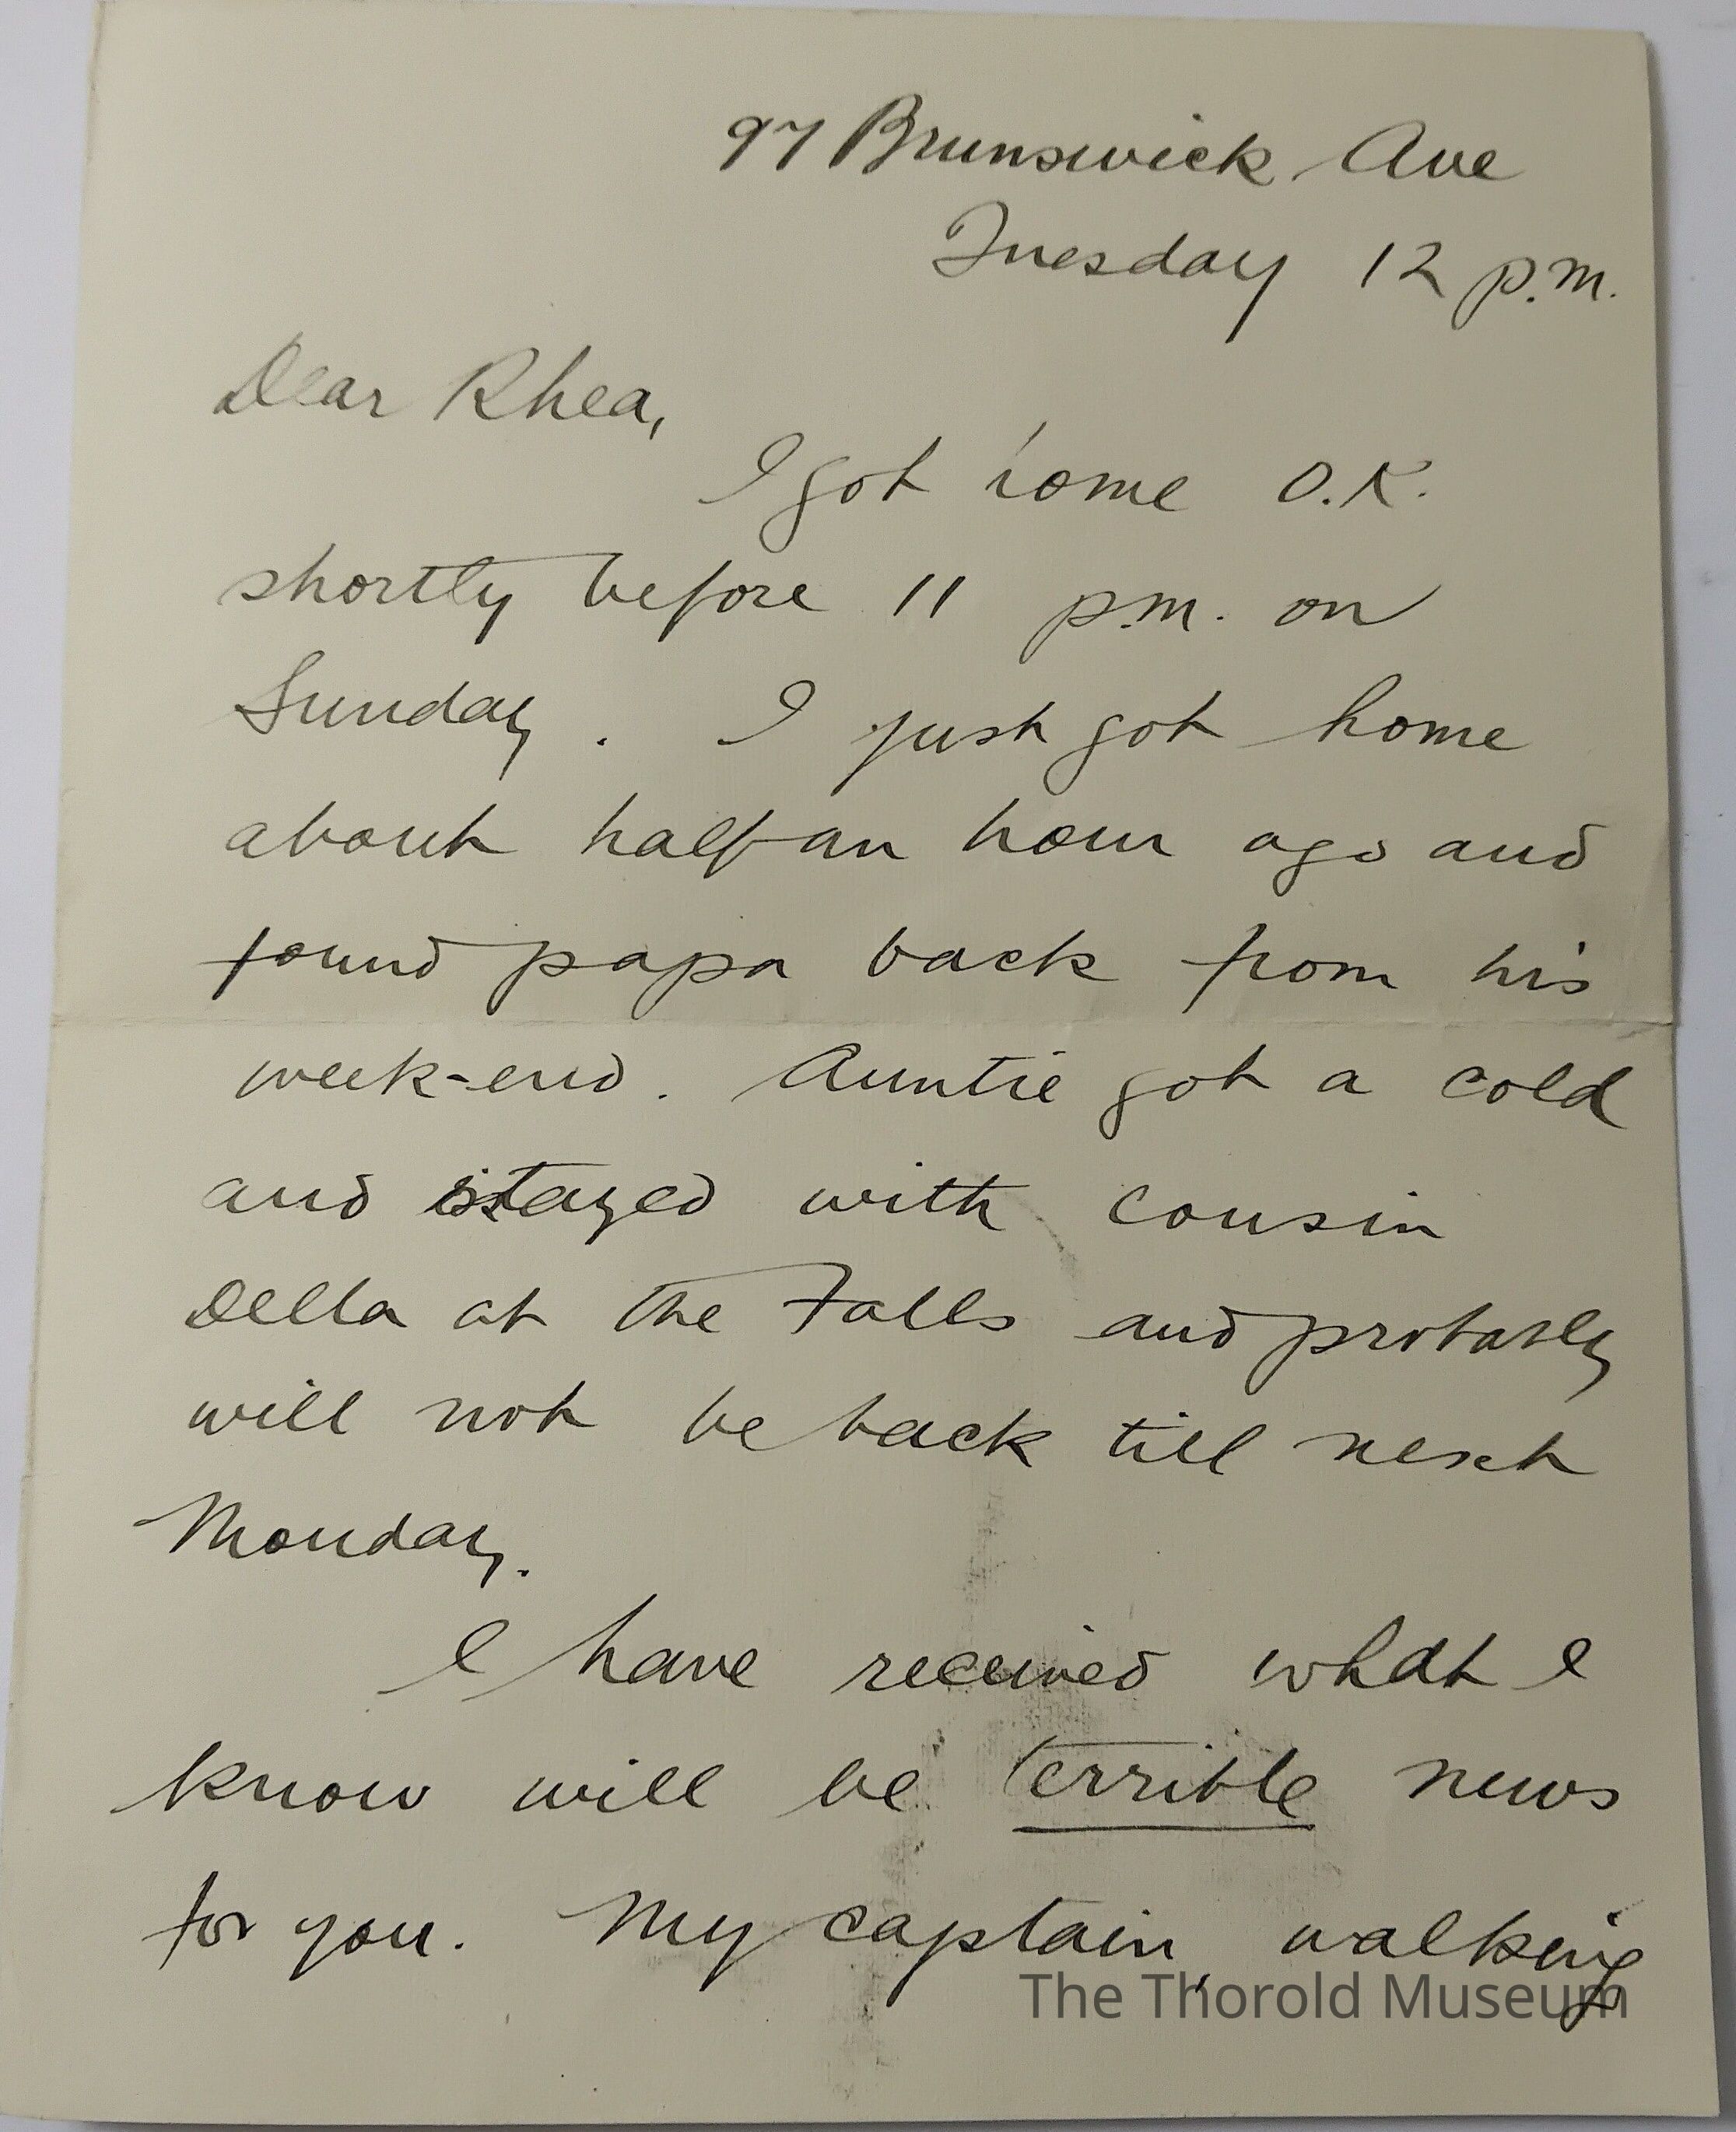 97 Brunswick Ave
Tuesday 12 p.m.
Dear Rhea,
I got home O.K.
shortly before 11 p.m. on
Sunday. I just got home
about half an hour ago and
found papa back from his
week-end. Auntie got a cold
and stayed with cousin
Della at the Falls and probably
will not be back till next
Monday.
I have received what I
know will be terrible news
for you. My captain, walking
The Thorold Museum